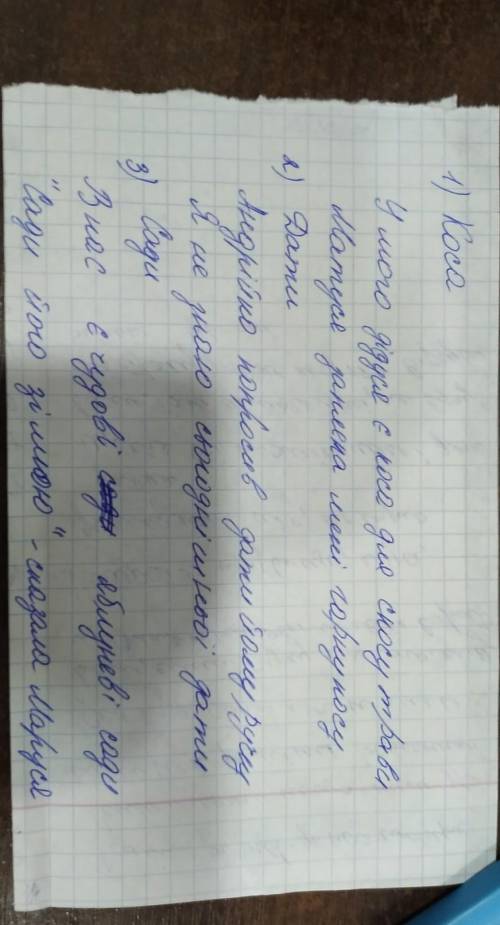 1) Коса
У мого дідуся є коса для скосу трави
Матуся заплела мені гарну косу
2) Дати
Андрійко попросив дати йому ручку
Я не знаю сьогоднішньої дати
3) Сади
В нас є чудові яблуневі сади
"Сади його зі мною" - сказала Маруся